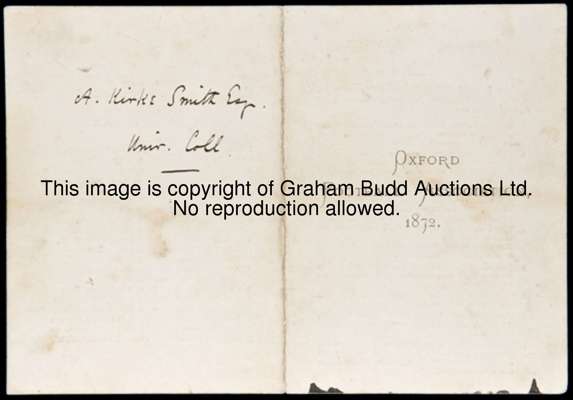 A. Kirke Smith Esq.
Univ. Coll.
OXFORD
1872.
This image is copyright of Graham Budd Auctions Ltd.
No reproduction allowed.